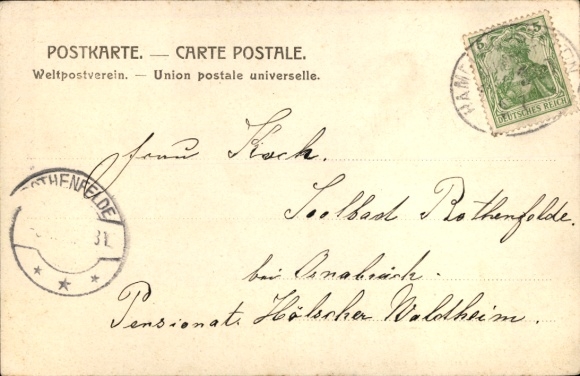 POSTKARTE. — CARTE POSTALE.
Weltpostverein. — Union postale universelle.
5 5
DEUTSCHES REICH
HAM
Frau Koch.
Soolbad Rothenfelde.
bei Osnabrück.
Pensionat Hölscher Waldheim.
ROTHENFELDE